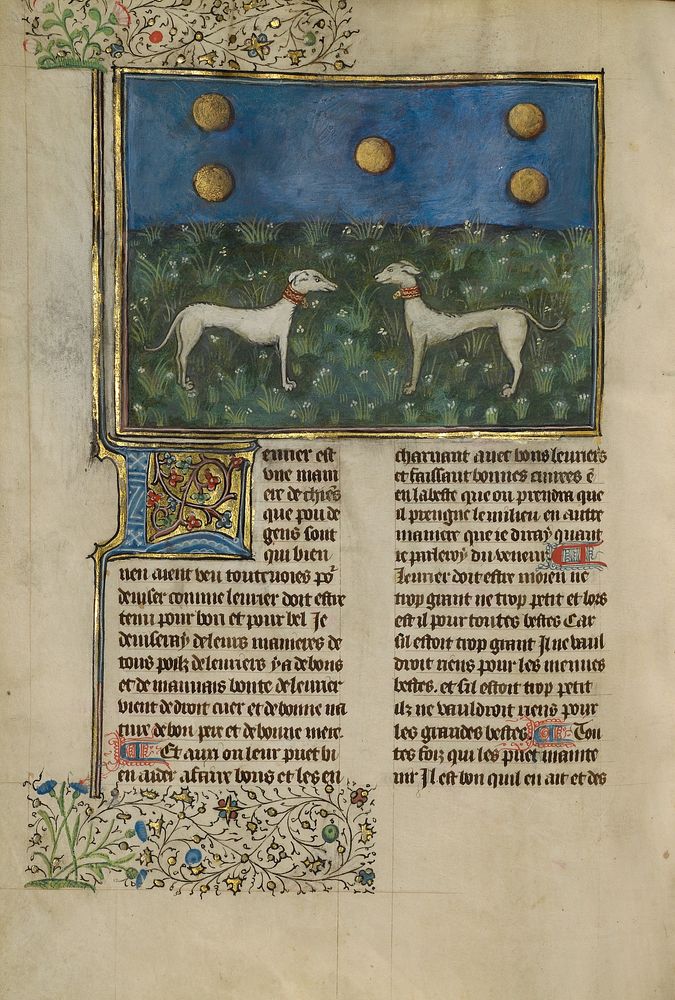 Leurier est
vne mani
ere de chiẽs
que pou de
gens sont
qui bien
nen aient veu toutteuoies pᵒ²
deuiser comme leurier doit estre
tenu pour bon et pour bel Je
deuiseray de leurs manieres de
tous poilz de leuriers y a de bons
et de mauuais bonte de leurier
vient de droit cuer et de bonne na
ture de bon pere et de bonne mere.
Et aussi on leur puet bi
en aider a faire bons et les en
charnant auec bons leuriers
et faisant bonnes cuirees ẽ
en la beste que on prendra que
il prengne le milieu en autre
maniere que ie diray quant
ie parleray du veneur
leurier doit estre moien ne
trop grant ne trop petit et lors
est il pour toutes bestes Car
sil estoit trop grant Il ne vaul
droit riens pour les menues
bestes. et sil estoit trop petit
il ne vauldroit riens pour
les grandes bestes Tou
tes foiz qui les puet mainte
nir Il est bon quil en ait et des